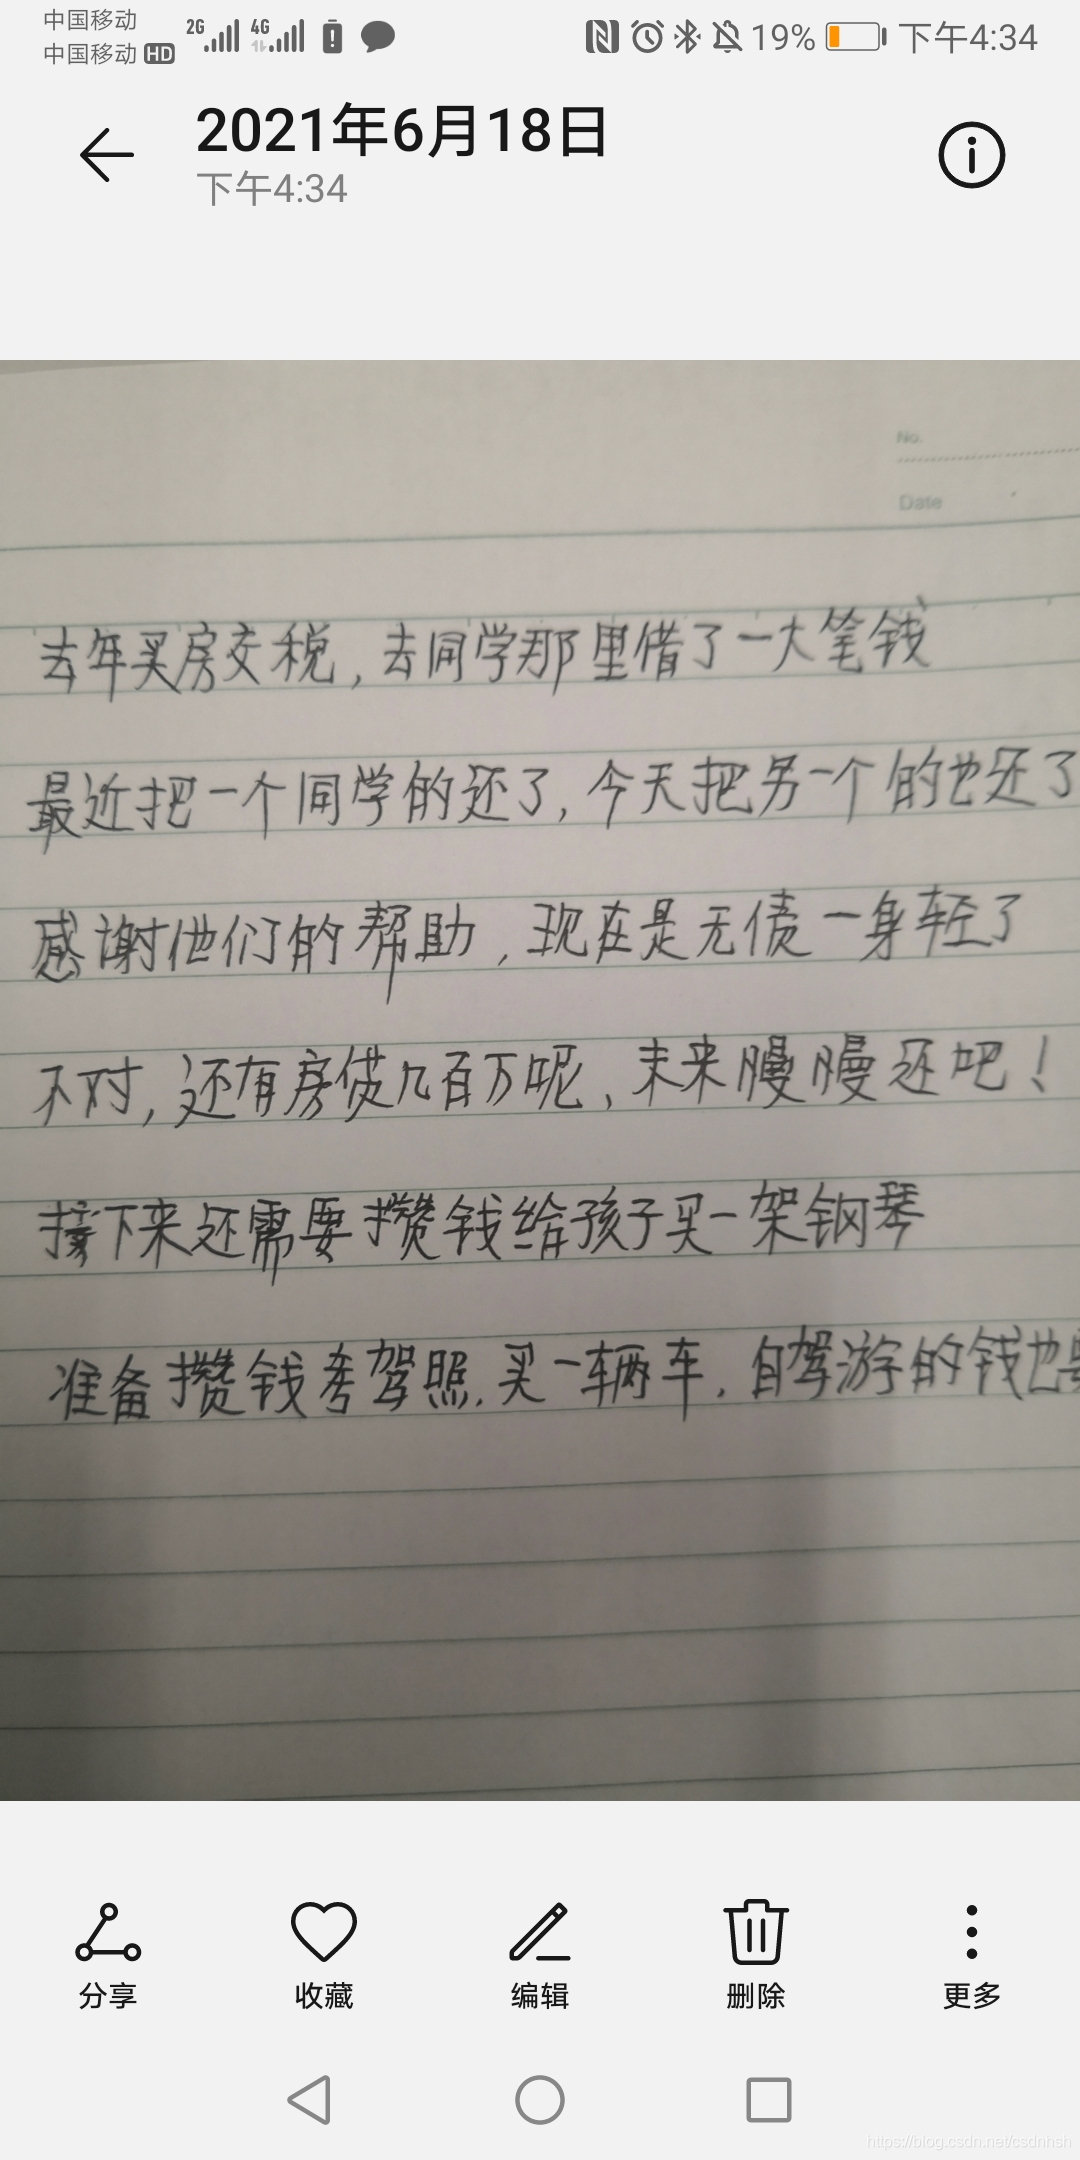 中国移动 2G 4G 19% 下午4:34
中国移动 HD
2021年6月18日
下午4:34
No.
Date
去年买房交税,去同学那里借了一大笔钱
最近把一个同学的还了,今天把另一个的也还了
感谢他们的帮助,现在是无债一身轻了
不对,还有房贷几百万呢,未来慢慢还吧!
接下来还需要攒钱给孩子买一架钢琴
准备攒钱考驾照.买一辆车.自驾游的钱也
分享 收藏 编辑 删除 更多
https://blog.csdn.net/csdnhsh